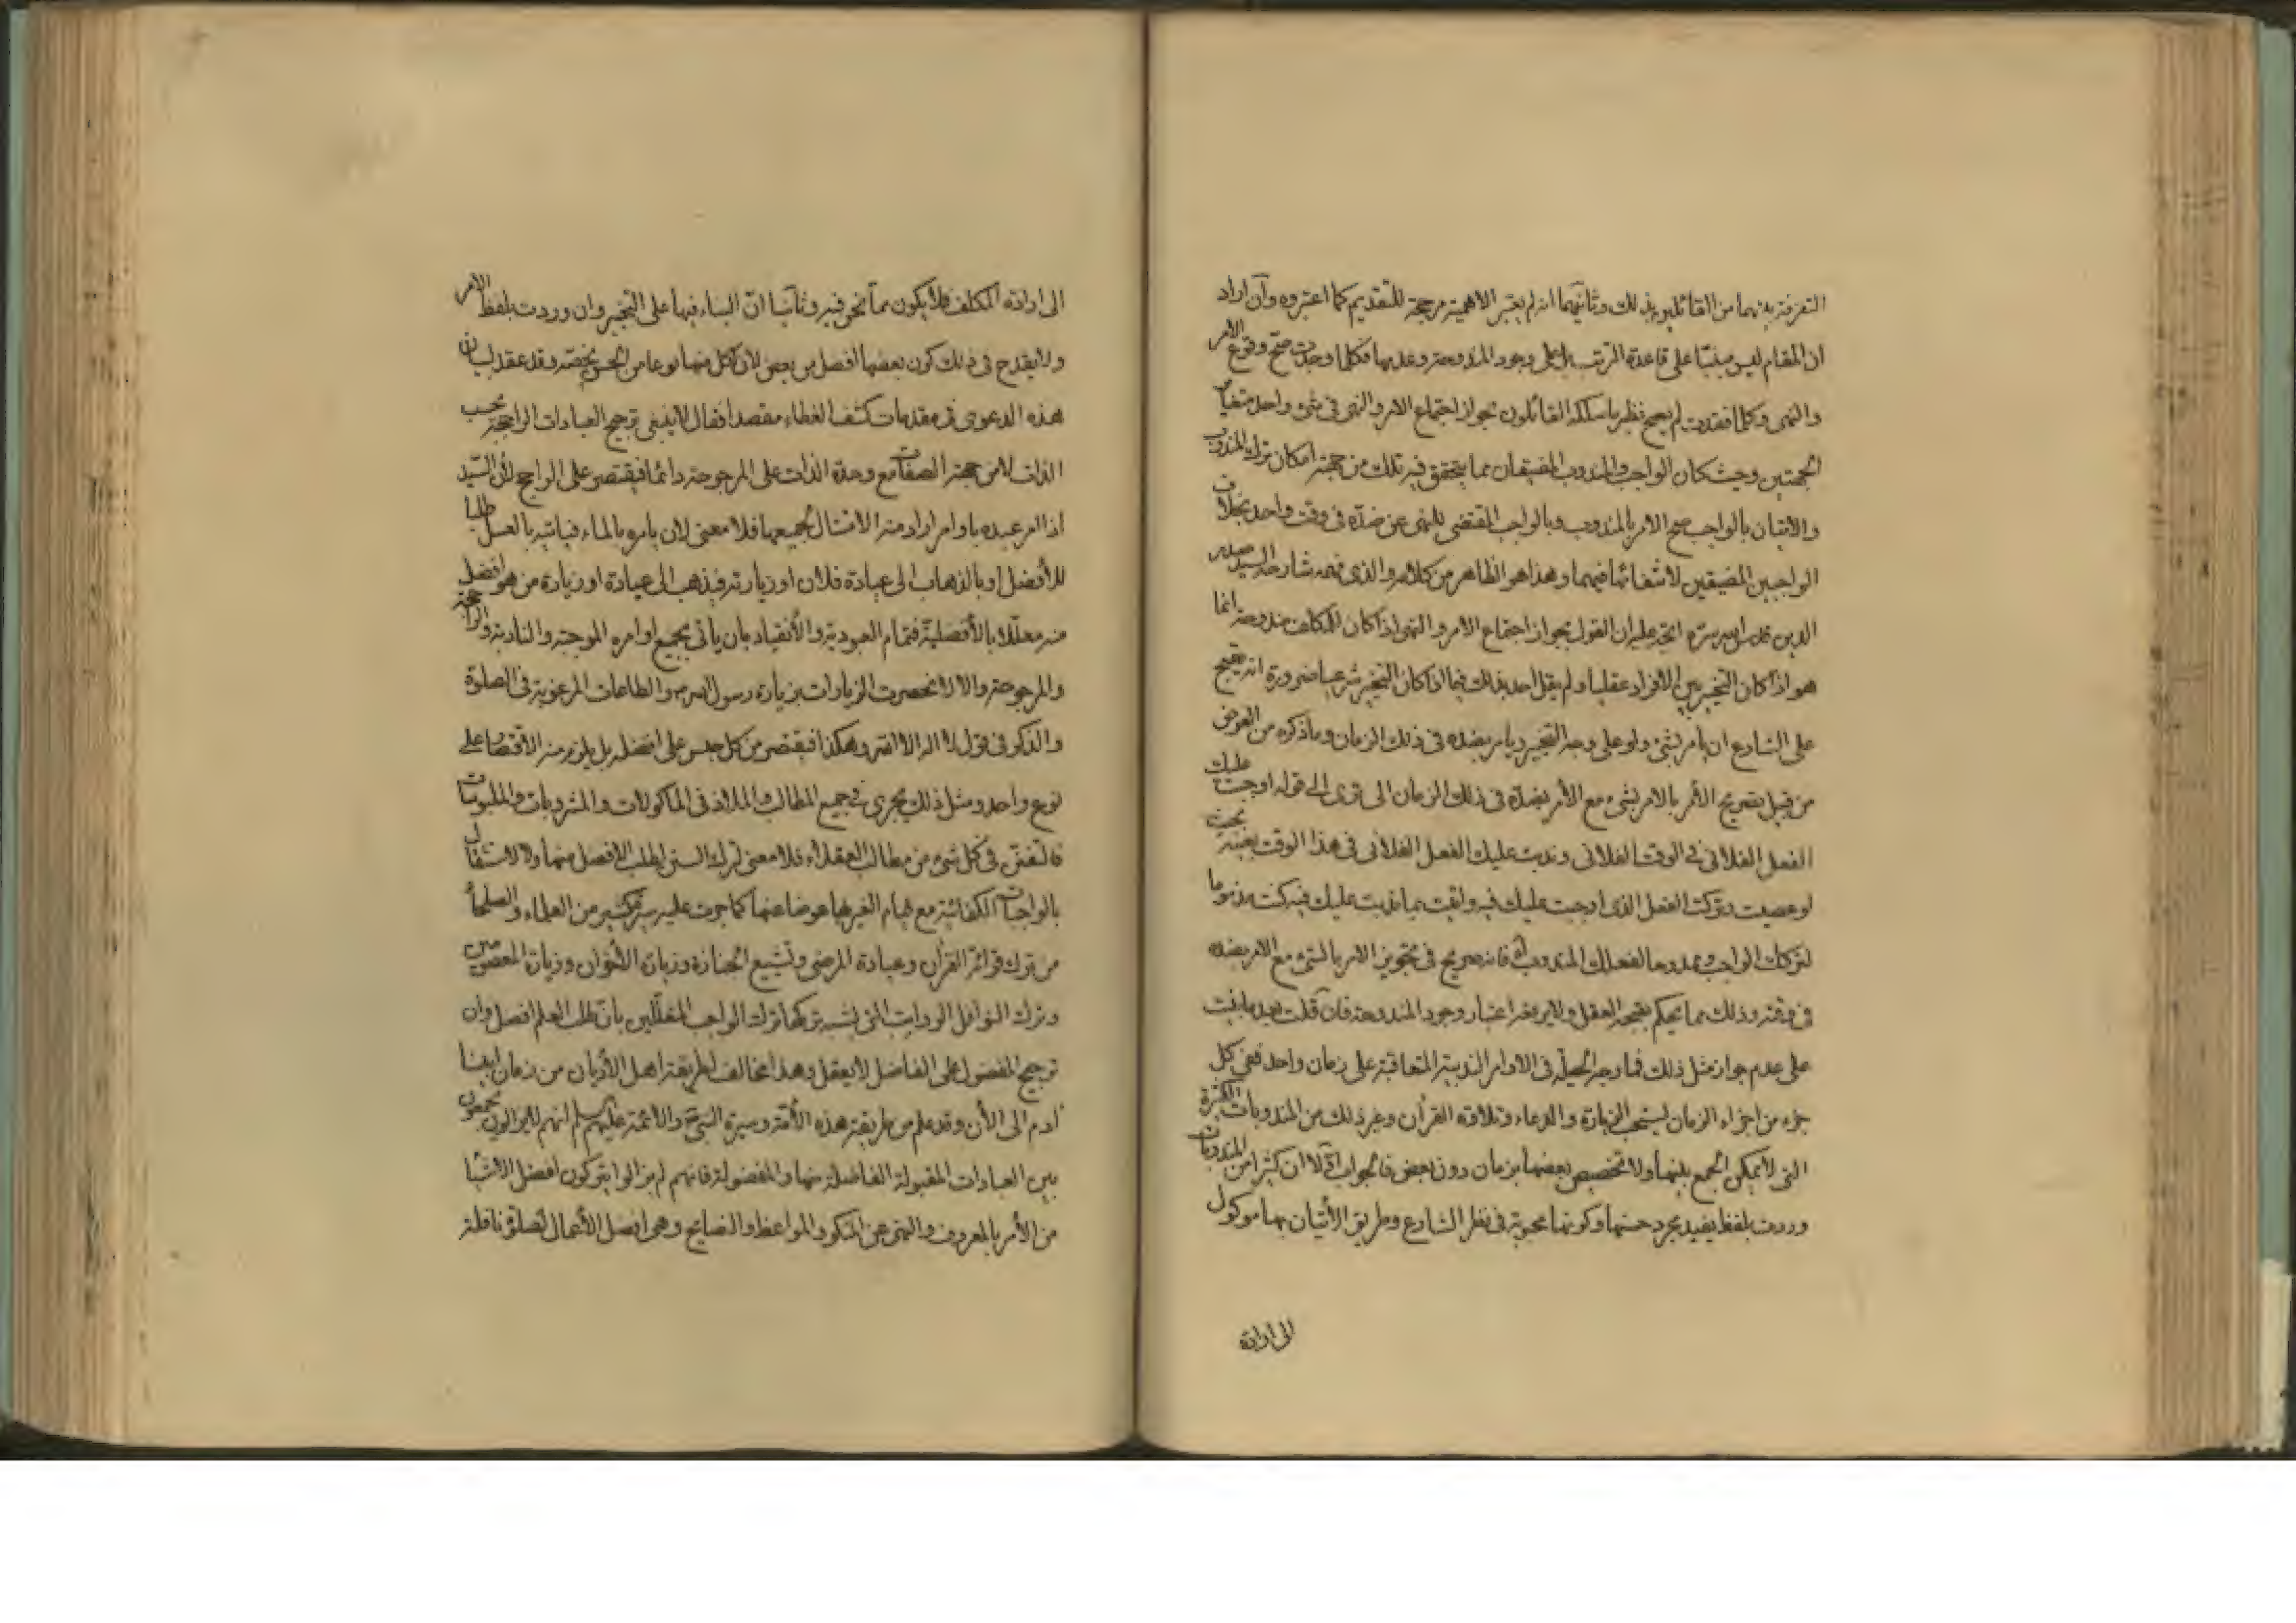 التفرقة بينهما من القائلين بذلك وثانيهما انه لم يعتبر الاهمية مرجحة للتقديم كما اعتبروه وان اراد
ان المقام ليس مبنيا على قاعدة الترتب بل على وجود المندوحة وعدمها فكلما وجدت صح وقوع الامر
والنهى وكلما فقدت لم يصح نظير ما سلكه القائلون بجواز اجتماع الامر والنهى فى شئ واحد متغاير
الجهتين وحيث كان الواجب والمندوب المضيقان مما يتحقق فيه تلك من جهة امكان ترك المندوب
والاتيان بالواجب صح الامر بالمندوب وبالواجب المقتضى للنهى عن ضده فى وقت واحد بخلاف
الواجبين المضيقين لانتفائها فيهما وهذا هو الظاهر من كلامه والذى فهمه شارحه السيد صدر
الدين قدس سره اتجه عليه ان القول بجواز اجتماع الامر والنهى اذا كان للمكلف مندوحة انما
هو اذا كان التخيير بين الافراد عقليا ولم يقل احد بذلك فيما اذا كان التخيير شرعيا ضرورة انه يقبح
على الشارع ان يامر بشئ ولو على وجه التخيير ويامر بضده فى ذلك الزمان وما ذكره من العرض
من قبيل تصريح الأمر بالامر بشئ مع الأمر بضده فى ذلك الزمان الى ترى الى قوله اوجبت عليك
الفعل الفلانى فى الوقت الفلانى وندبت عليك الفعل الفلانى فى هذا الوقت بعينه بحيث
لو عصيت وتركت الفعل الذى اوجبت عليك فيه واتيت بما ندبت عليك فيه كنت مذموما
لتركك الواجب وممدوحا لفعلك المندوب اه فانه صريح فى تجويز الامر بالشئ مع الامر بضده
فى وقته وذلك مما يحكم بقبحه العقل ولا يرفعه اعتبار وجود المندوحة فان قلت بعد ما بنيت
على عدم جواز مثل ذلك فما وجه الحيلة فى الاوامر الندبية المتعاقبة على زمان واحد ففى كل
جزء من اجزاء الزمان يستحب الزيارة والدعاء وتلاوة القران وغير ذلك من المندوبات الكثيرة
التى لا يمكن الجمع بينها ولا تخصيص بعضها بزمان دون بعض فالجواب اولا ان كثيرا من المندوبات
وردت بلفظ يفيد مجرد حسنها وكونها محبوبة فى نظر الشارع وطريق الأتيان بها موكول
الى ارادة
الى ارادة المكلف فلا يكون مما نحن فيه وثانيا ان البناء فيها على التخيير وان وردت بلفظ الامر
ولا يقدح فى ذلك كون بعضها افضل من بعض لان لكل منها نوعا من الحسن يخصه وقد عقد لبيان
هذه الدعوى فى مقدمات كشف الغطاء مقصدا فقال لا ينبغى ترجيح العبادات الراجحة بحسب
الذات لا من جهة الصفات مع وحدة الذات على المرجوحة دائما فيقتصر على الراجح لأن السيد
اذا امر عبده باوامر اراد منه الامتثال لجميعها فلا معنى لان يامره بالماء فياتيه بالعسل طلبا
للأفضل او بالذهاب الى عيادة فلان او زيارته فيذهب الى عيادة او زيارة من هو افضل
منه معللا بالأفضلية فتمام العبودية والأنقياد بان يأتى بجميع اوامره الموجبة والنادبة والراجحة
والمرجوحة والا لانحصرت الزيارات بزيارة رسول الله ص والطاعات المرغوبة فى الصلوة
والذكر فى قول لا اله الا الله وهكذا فيقتصر من كل جنس على افضله بل يلزم منه الاقتصار على
نوع واحد ومثل ذلك يجرى فى جميع المطالب والملاذ فى الماكولات والمشروبات والملبوسات
فالتفنن فى كل شئ من مطالب العقلاء فلا معنى لترك السنن لطلب الافضل منها ولا لاشتغال
بالواجبات الكفائية مع قيام الغير بها عوضا عنها كما جرت عليه سيرة كثير من العلماء والصلحاء
من ترك قرائة القران وعيادة المرضى وتشييع الجنازة وزيارة الأخوان وزيارة المعصومين
وترك النوافل الرواتب التى يشبه تركها ترك الواجب المعللين بان طلب العلم افضل وان
ترجيح المفضول على الفاضل لا يعقل وهذا مخالف لطريقة اهل الأديان من زمان ابينا
ادم الى الأن وقد علم من طريقة هذه الأمة وسيرة النبى والائمة عليهم السلام انهم لا يزالون يجمعون
بين العبادات المقبولة الفاضلة منها والمفضولة فانهم لم يزالوا يتركون افضل الاشياء
من الأمر بالمعروف والنهى عن المنكر والمواعظ والنصايح وهى افضل الأعمال لصلوة نافلة